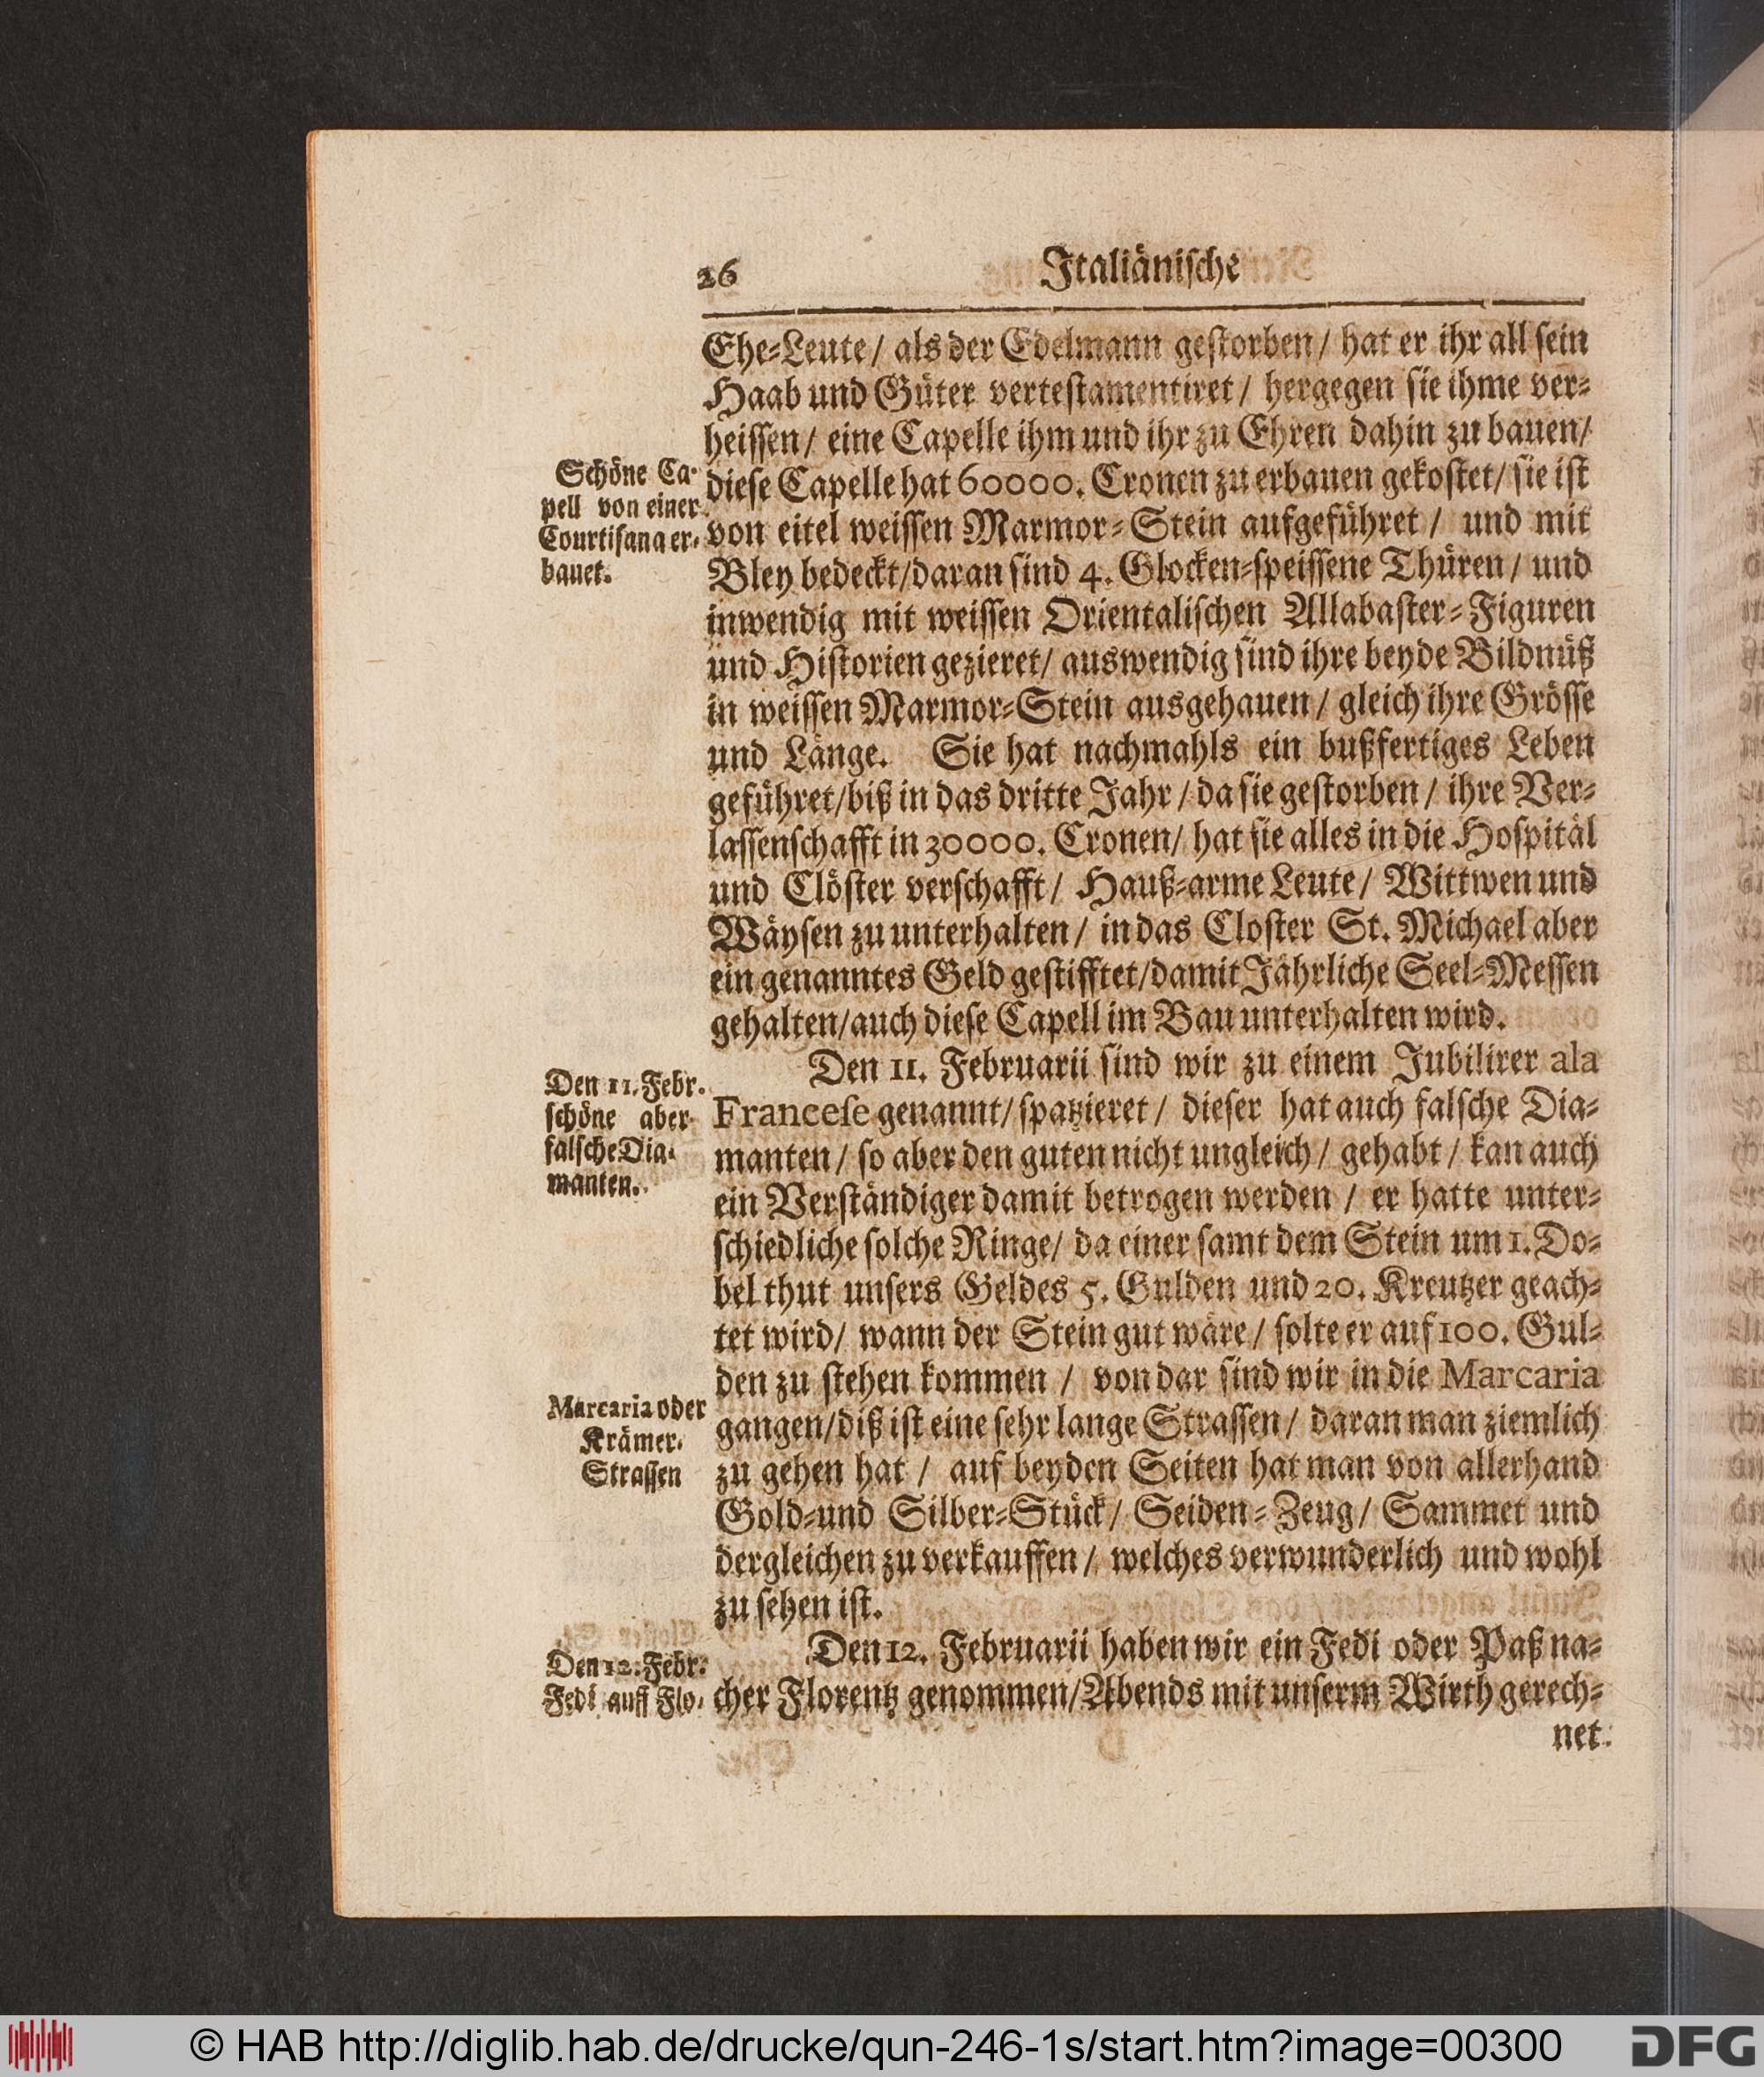 26 Italiänische
Ehe-Leute / als der Edelmann gestorben / hat er ihr all sein
Haab und Güter vertestamentiret / hergegen sie ihme ver-
heissen / eine Capelle ihm und ihr zu Ehren dahin zu bauen /
diese Capelle hat 60000. Cronen zu erbauen gekostet / sie ist
von eitel weissen Marmor-Stein aufgeführet / und mit
Bley bedeckt / daran sind 4. Glocken-speissene Thüren / und
inwendig mit weissen Orientalischen Allabaster-Figuren
und Historien gezieret / auswendig sind ihre beyde Bildnüß
in weissen Marmor-Stein ausgehauen / gleich ihre Grösse
und Länge. Sie hat nachmahls ein bußfertiges Leben
geführet / biß in das dritte Jahr / da sie gestorben / ihre Ver-
lassenschafft in 30000. Cronen / hat sie alles in die Hospitäl
und Clöster verschafft / Hauß-arme Leute / Wittwen und
Wäysen zu unterhalten / in das Closter St. Michael aber
ein genanntes Geld gestifftet / damit Jährliche Seel-Messen
gehalten / auch diese Capell im Bau unterhalten wird.
Schöne Ca-
pell von einer
Courtisana er-
bauet.
Den 11. Februarii sind wir zu einem Jubilirer ala
Francese genannt / spatzieret / dieser hat auch falsche Dia-
manten / so aber den guten nicht ungleich / gehabt / kan auch
ein Verständiger damit betrogen werden / er hatte unter-
schiedliche solche Ringe / da einer samt dem Stein um 1. Do-
bel thut unsers Geldes 5. Gulden und 20. Kreutzer geach-
tet wird / wann der Stein gut wäre / solte er auf 100. Gul-
den zu stehen kommen / von dar sind wir in die Marcaria
gangen / diß ist eine sehr lange Strassen / daran man ziemlich
zu gehen hat / auf beyden Seiten hat man von allerhand
Gold-und Silber-Stück / Seiden-Zeug / Sammet und
dergleichen zu verkauffen / welches verwunderlich und wohl
zu sehen ist.
Den 11. Febr.
schöne aber
falsche Dia-
manten.
Marcaria oder
Krämer-
Strassen
Den 12. Februarii haben wir ein Fedi oder Paß na-
cher Florentz genommen / Abends mit unserm Wirth gerech-
Den 12. Febr.
Fedi auff Flo-
net
© HAB http://diglib.hab.de/drucke/qun-246-1s/start.htm?image=00300
DFG